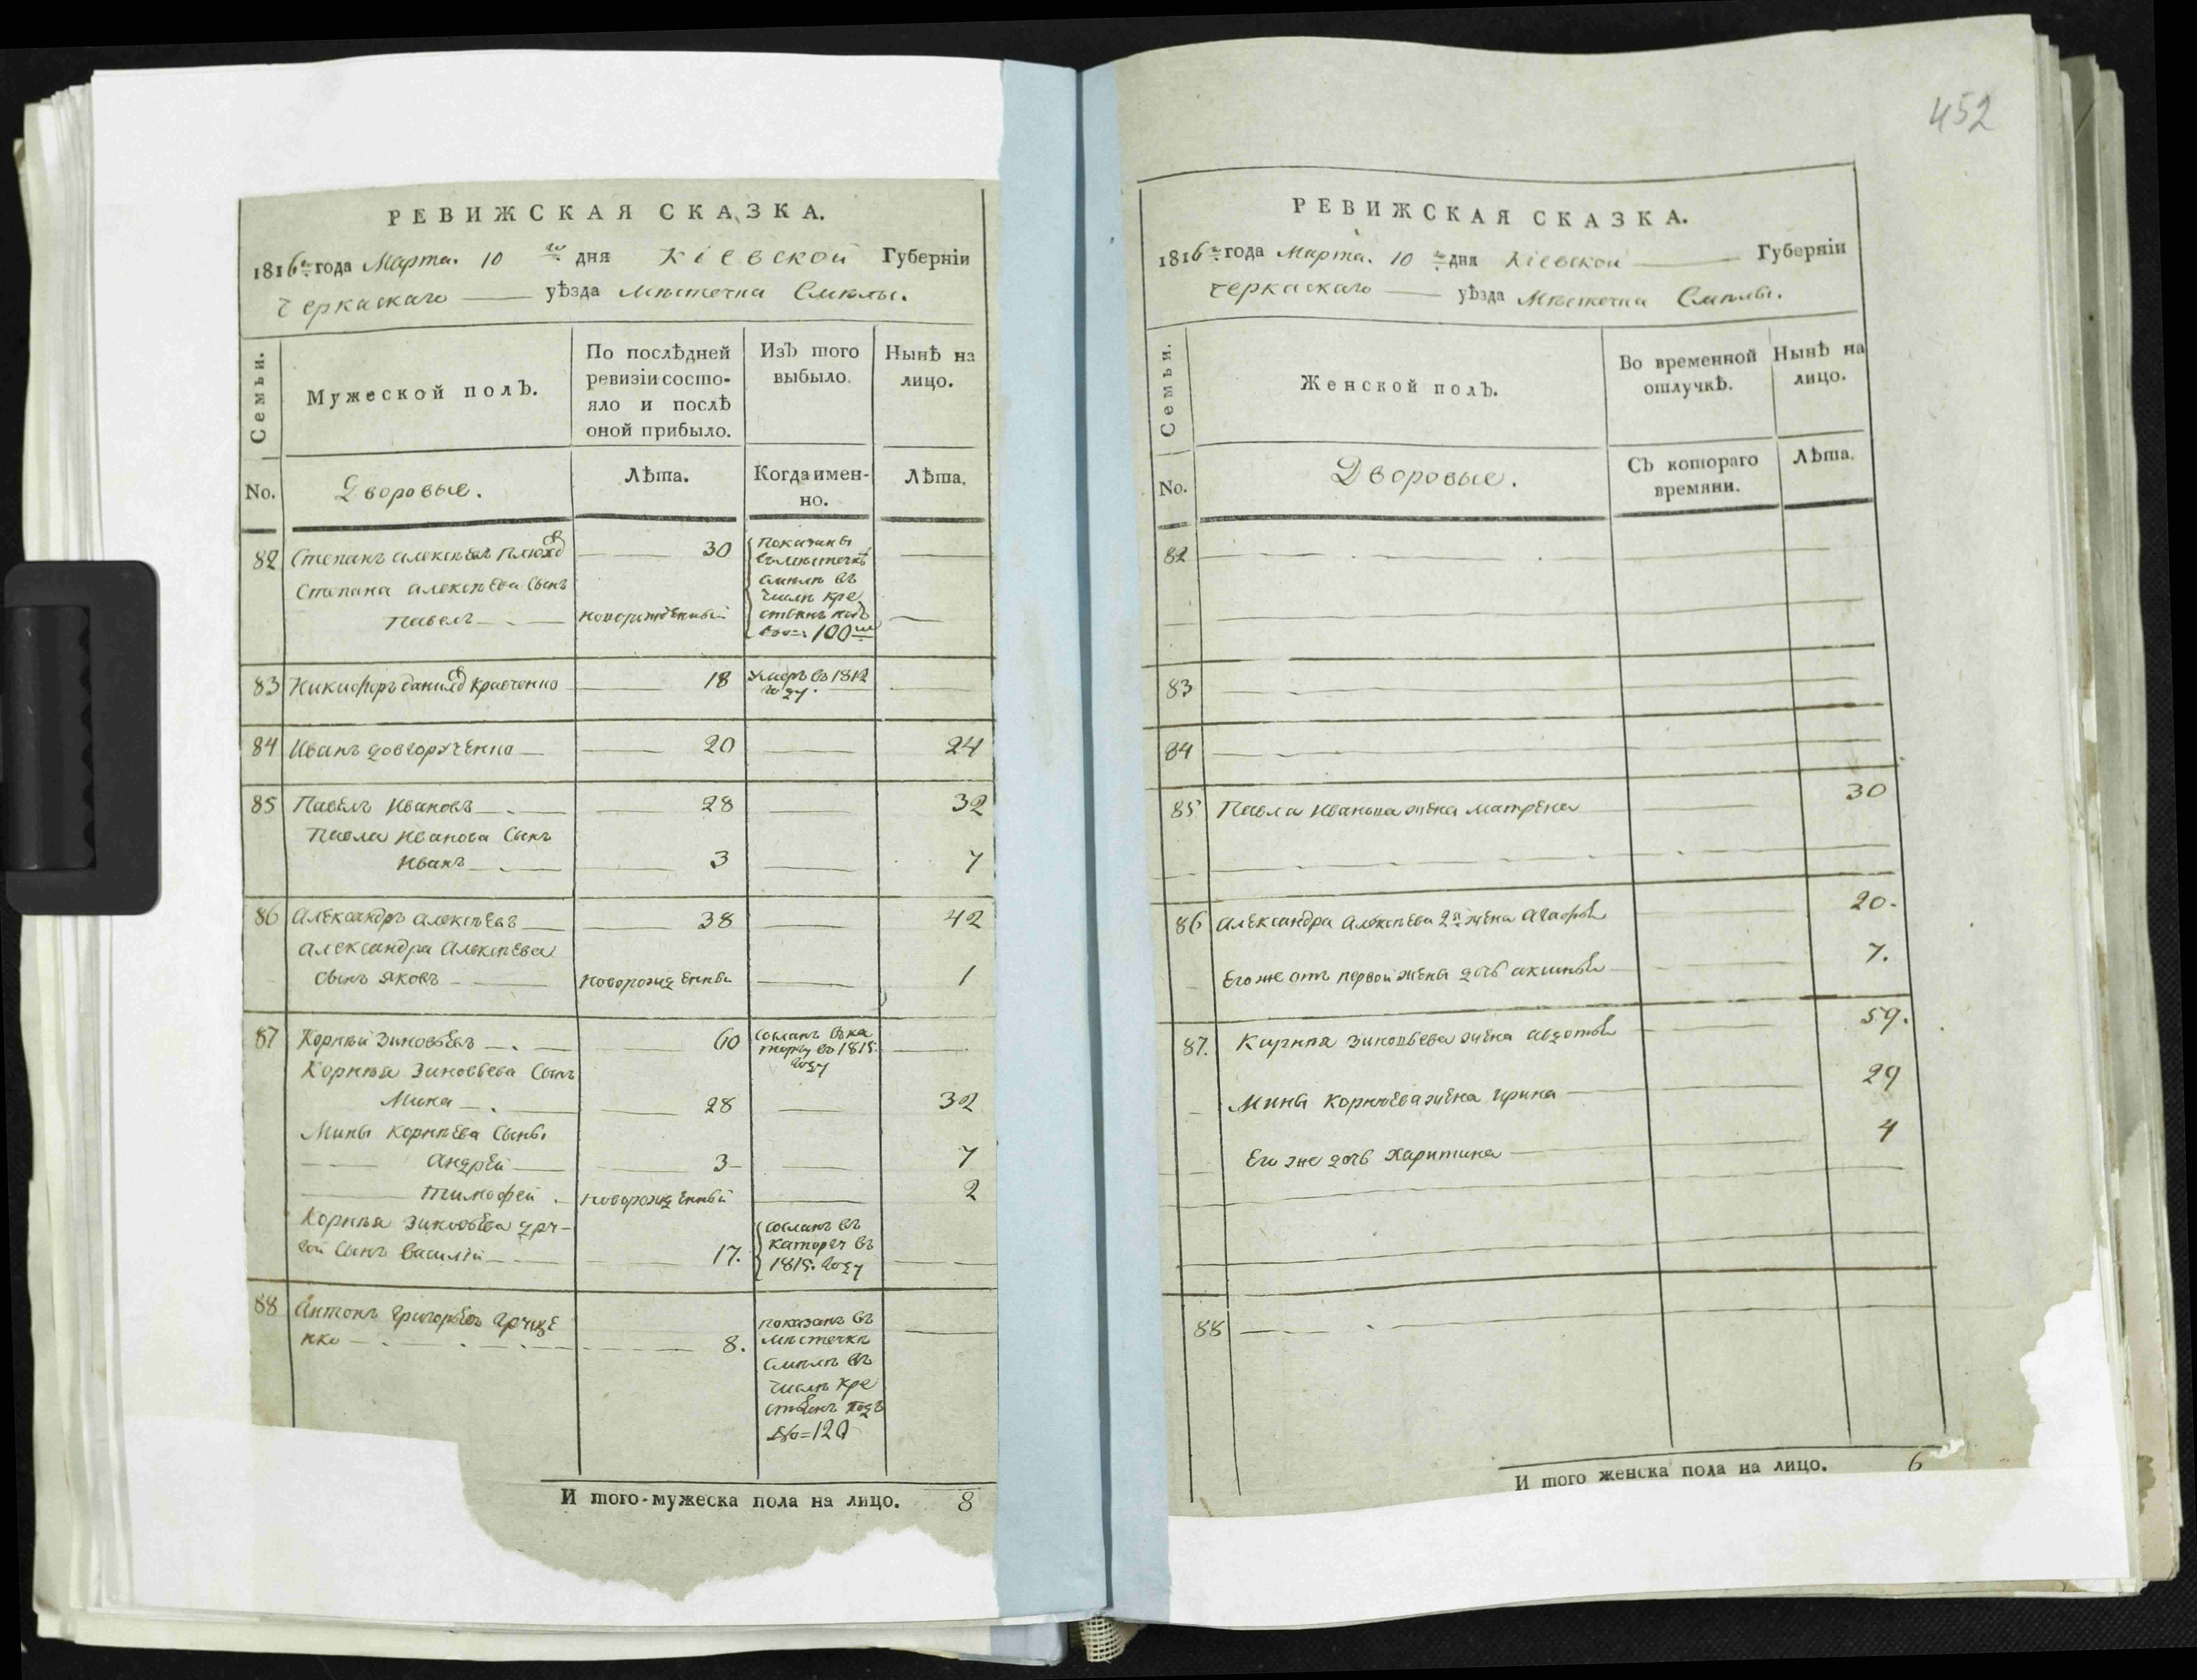 452
РЕВИЖСКАЯ СКАЗКА.
1816го года Марта. 10 го дня Кіевской Губерніи
Черкаскаго уѣзда Мѣстечка Смѣлы.
Семьи.
Мужеской полъ.
По послѣдней ревизіи состо-
яло и послѣ
оной прибыло.
Изъ того
выбыло.
Нынѣ на
лицо.
No.
Дворовые.
Лѣта.
Когда имен-
но.
Лѣта.
82 Степанъ Алексѣевъ 30
Показаны
въ мѣстечкѣ
Смѣлѣ въ
числѣ кре
стьянъ подъ
№= 100мъ
Степана Алексѣева Сынъ
Павелъ новорожденный
83 Никифоръ Данилов Кравченко 18 Умеръ въ 1812
году.
84 Иванъ Довгорученко 20 24
85 Павелъ Ивановъ 28 32
Павла Иванова Сынъ
Иванъ 3 7
86 Александръ Алексѣевъ 38 42
Александра Алексѣева
Сынъ Яковъ новорожденный 1
87 Корнѣй Зиновьевъ 60 Сосланъ въ ка
торгу въ 1815.
году
Корнѣя Зиновьева Сынъ
Мина 28 32
Мины Корнѣева Сыны
Андрей 3 7
Тимофей новорожденный 2
Корнѣя Зиновьева дру-
гой Сынъ Василій 17.
Сосланъ въ
каторгу въ
1815. году
88 Антонъ Григорьевъ Грице
нко 8.
показанъ въ
мѣстечкѣ
Смѣлѣ въ
числѣ кре
стьянъ подъ
№=120
И того мужеска пола на лицо. 8
РЕВИЖСКАЯ СКАЗКА.
1816го года Марта. 10 го дня Кіевской Губерніи
Черкаскаго уѣзда Мѣстечка Смѣлы.
Семьи.
Женской полъ.
Во временной
отлучкѣ.
Нынѣ на
лицо.
No.
Дворовые.
Съ котораго
времяни.
Лѣта.
82
83
84
85 Павла Иванова жена Матрена 30
86 Александра Алексѣева 2я жена Агафья 20.
Его же отъ первой жены дочь Аксинья 7.
87. Корнѣя Зиновьева жена Авдотья 59.
Мины Корнѣева жена Ирина 29
Его же дочь Харитина 4
88
И того женска пола на лицо. 6